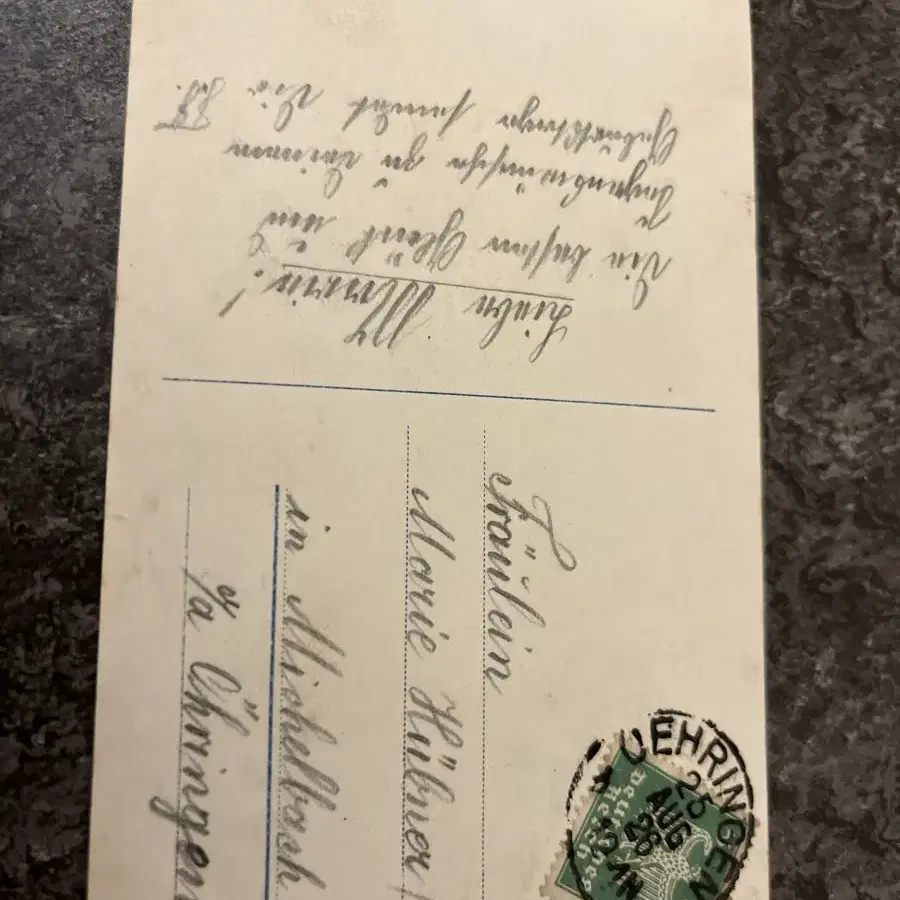 Liebe Marie!
Die besten Glück und
Segenswünsche zu Deinem
Geburtstage sendet Dir
Fräulein
Marie Hübner
in Michelbach
a/ Öhringen
UEHRINGEN
25
AUG
26